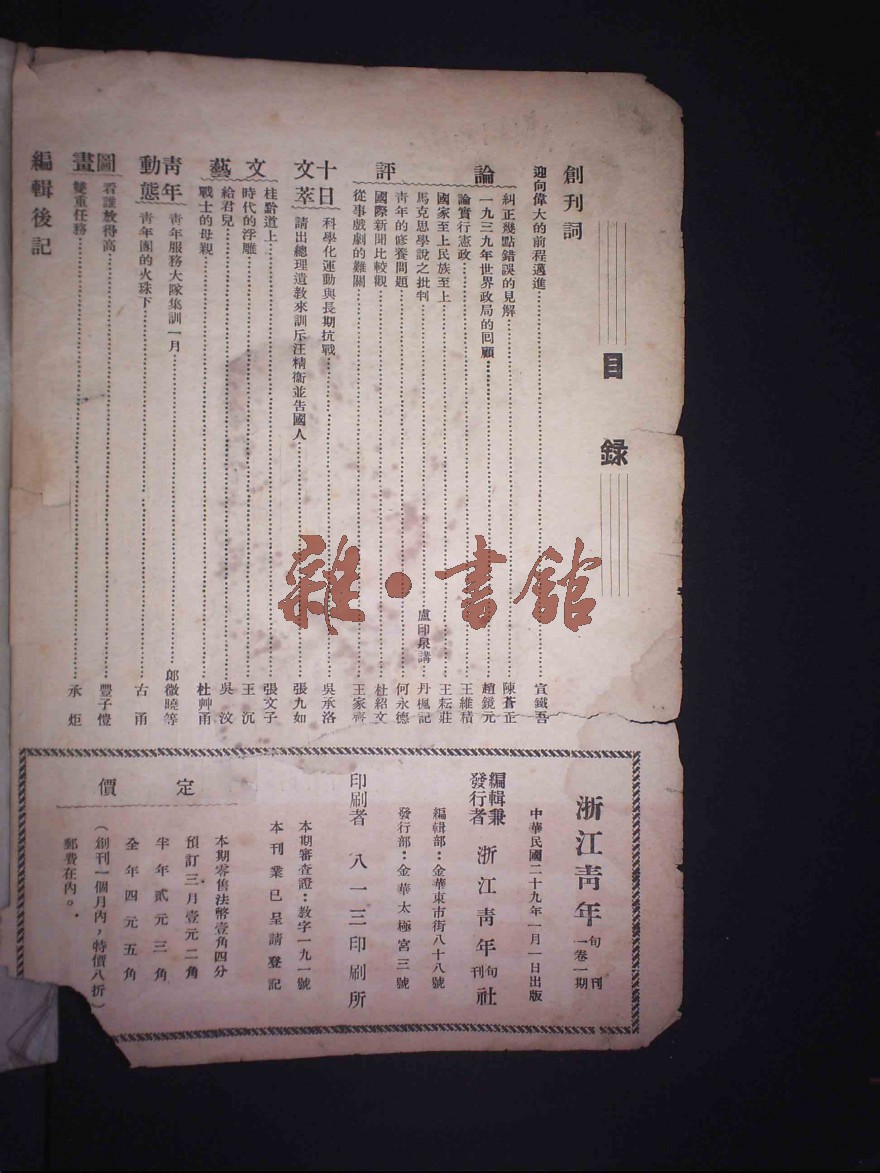 目錄
創刊詞
迎向偉大的前程邁進……宣鐵吾
論評
糾正幾點錯誤的見解……陳蒼正
一九三九年世界政局的回顧……趙鏡元
論實行憲政……王維積
國家至上民族至上……王耘莊
馬克思學說之批判……盧印泉講 丹楓記
青年的修養問題……何永德
國際新聞比較觀……杜紹文
從事戲劇的難關……王家齊
十日文萃
科學化運動與長期抗戰……吳承洛
請出總理遺教來訓斥汪精衞並告國人……張九如
文藝
桂黔道上……張文子
時代的浮雕……王沉
給君兒……吳汶
戰士的母親……杜艸甬
青年動態
青年服務大隊集訓一月……郎微曉等
青年團的火珠下……古甬
圖畫
看誰放得高……豐子愷
雙重任務……承炬
編輯後記
浙江青年旬刊 一卷一期
中華民國二十九年一月一日出版
編輯兼發行者 浙江青年旬刊社
編輯部：金華東市街八十八號
發行部：金華太極宮三號
印刷者 八一三印刷所
本期審查證：教字一九一號
本刊業已呈請登記
定價
本期零售法幣壹角四分
預訂三月壹元二角
半年貳元三角
全年四元五角
（創刊一個月內，特價八折）
郵費在內。
雜·書館